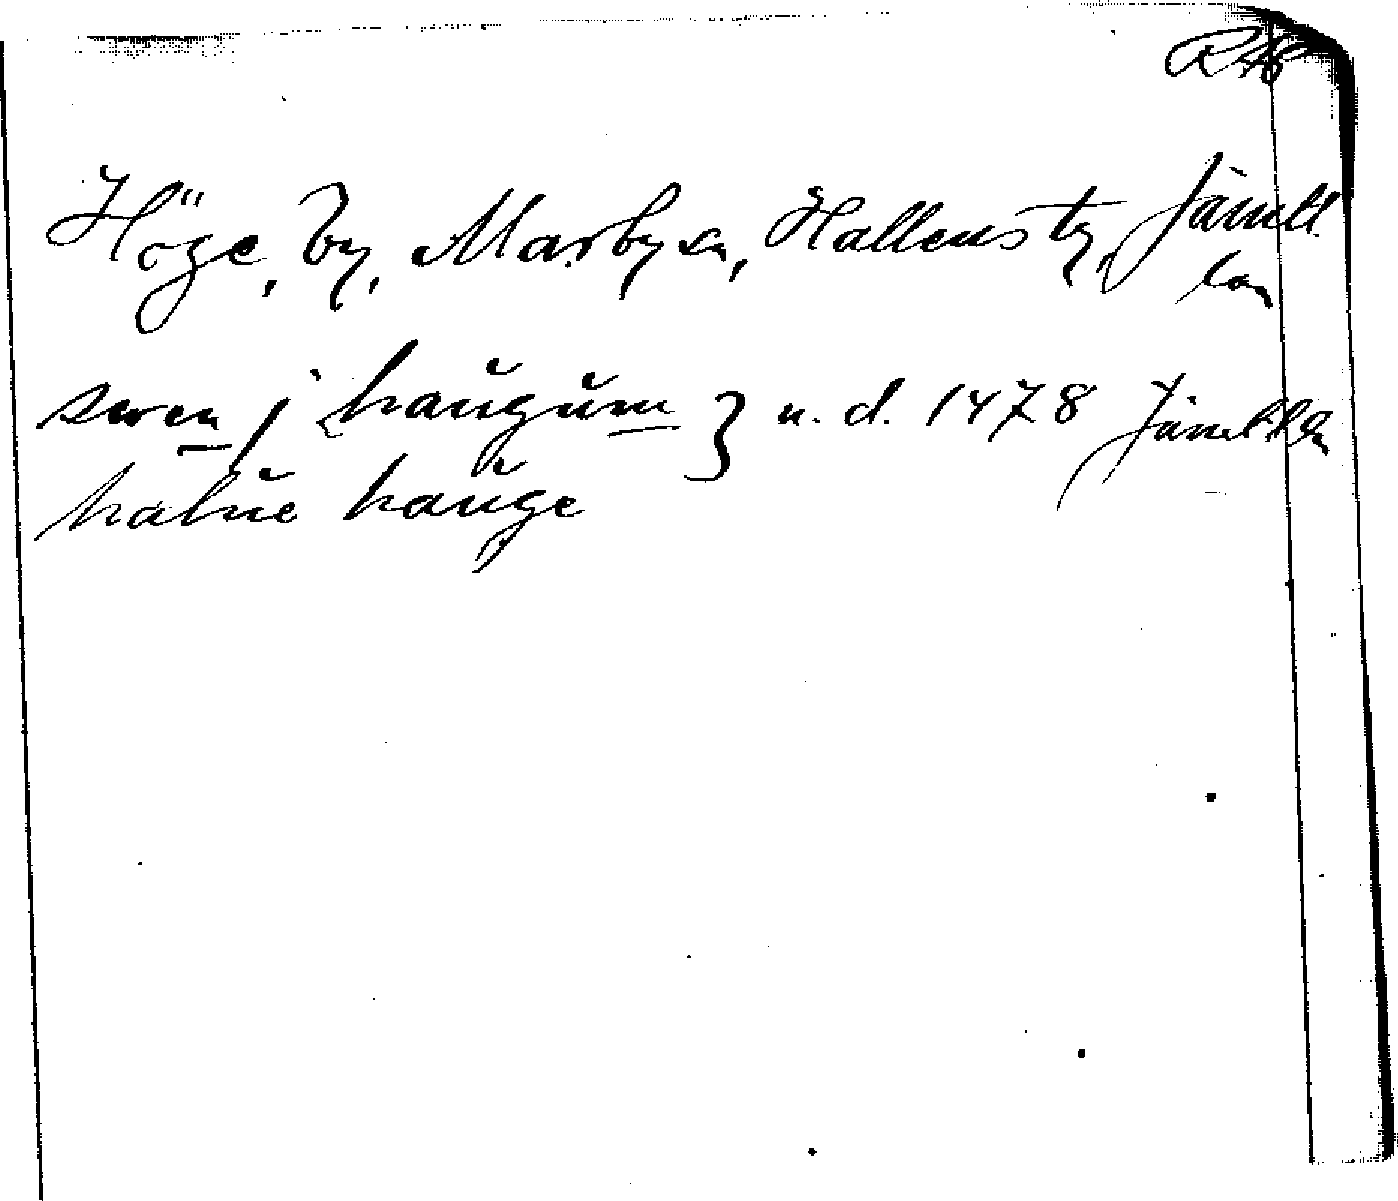 RAP
Höge, by, Marby sn, Hallens tg, Jämtl.
län
swen j haugum } u. d. 1478 Jämtl. län
halue hauge